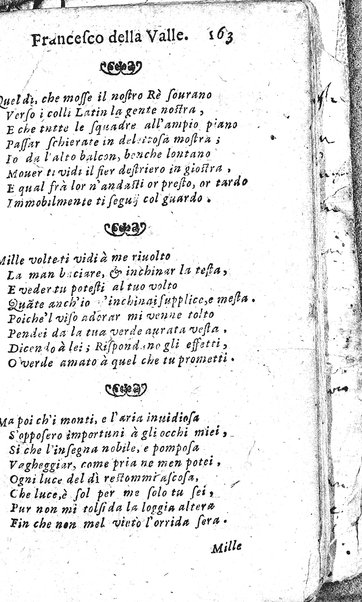 Francesco della Valle. 163
Quel dì, che mosse il nostro Rè sourano
Verso i colli Latin la gente nostra,
E che tutte le squadre all'ampio piano
Passar schierate in deleitosa mostra;
Io da l'alto balcon, benche lontano
Mouer ti vidi il fier destriero in giostra,
E qual frà lor n'andasti or presto, or tardo
Immobilmente ti seguij col guardo.
Mille volte ti vidi à me riuolto
La man baciare, & inchinar la testa,
E veder tu potesti al tuo volto
Quãte anch'io m'inchinai supplice, e mesta.
Poiche'l viso adorar mi venne tolto
Pendei da la tua verde aurata vesta,
Dicendo à lei; Rispondano gli effetti,
O verde amato à quel che tu prometti.
Ma poi ch'i monti, e l'aria inuidiosa
S'opposero importuni à gli occhi miei,
Si che l'insegna nobile, e pomposa
Vagheggiar, come pria ne men potei,
Ogni luce del dì restommi ascosa,
Che luce, è sol per me solo tu sei,
Pur non mi tolsi da la loggia altera
Fin che non mel vietò l'orrida sera.
Mille